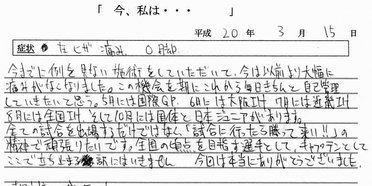 「 今、私は・・・ 」
平成 20 年 3 月 15 日
症状 左ヒザ痛み OPMD
今までに例を見ない施術をしていただいて、今は以前より大幅に
痛みがなくなりました。この機会を期にこれから毎日きちんと自己管理
していきたいと思う。5月には国際GP、6月には大阪IH、7月には近畿IH
8月には全国IH、そして10月には国体と日本ジュニアがあります。
全ての試合を出場するだけではなく「試合に行ったら勝って来い!!」の
精神で頑張りたいです。全国の頂点を目指す選手として、キャプテンとして
ここで立ち止まる訳にはいきません 今日は本当にありがとうございました。